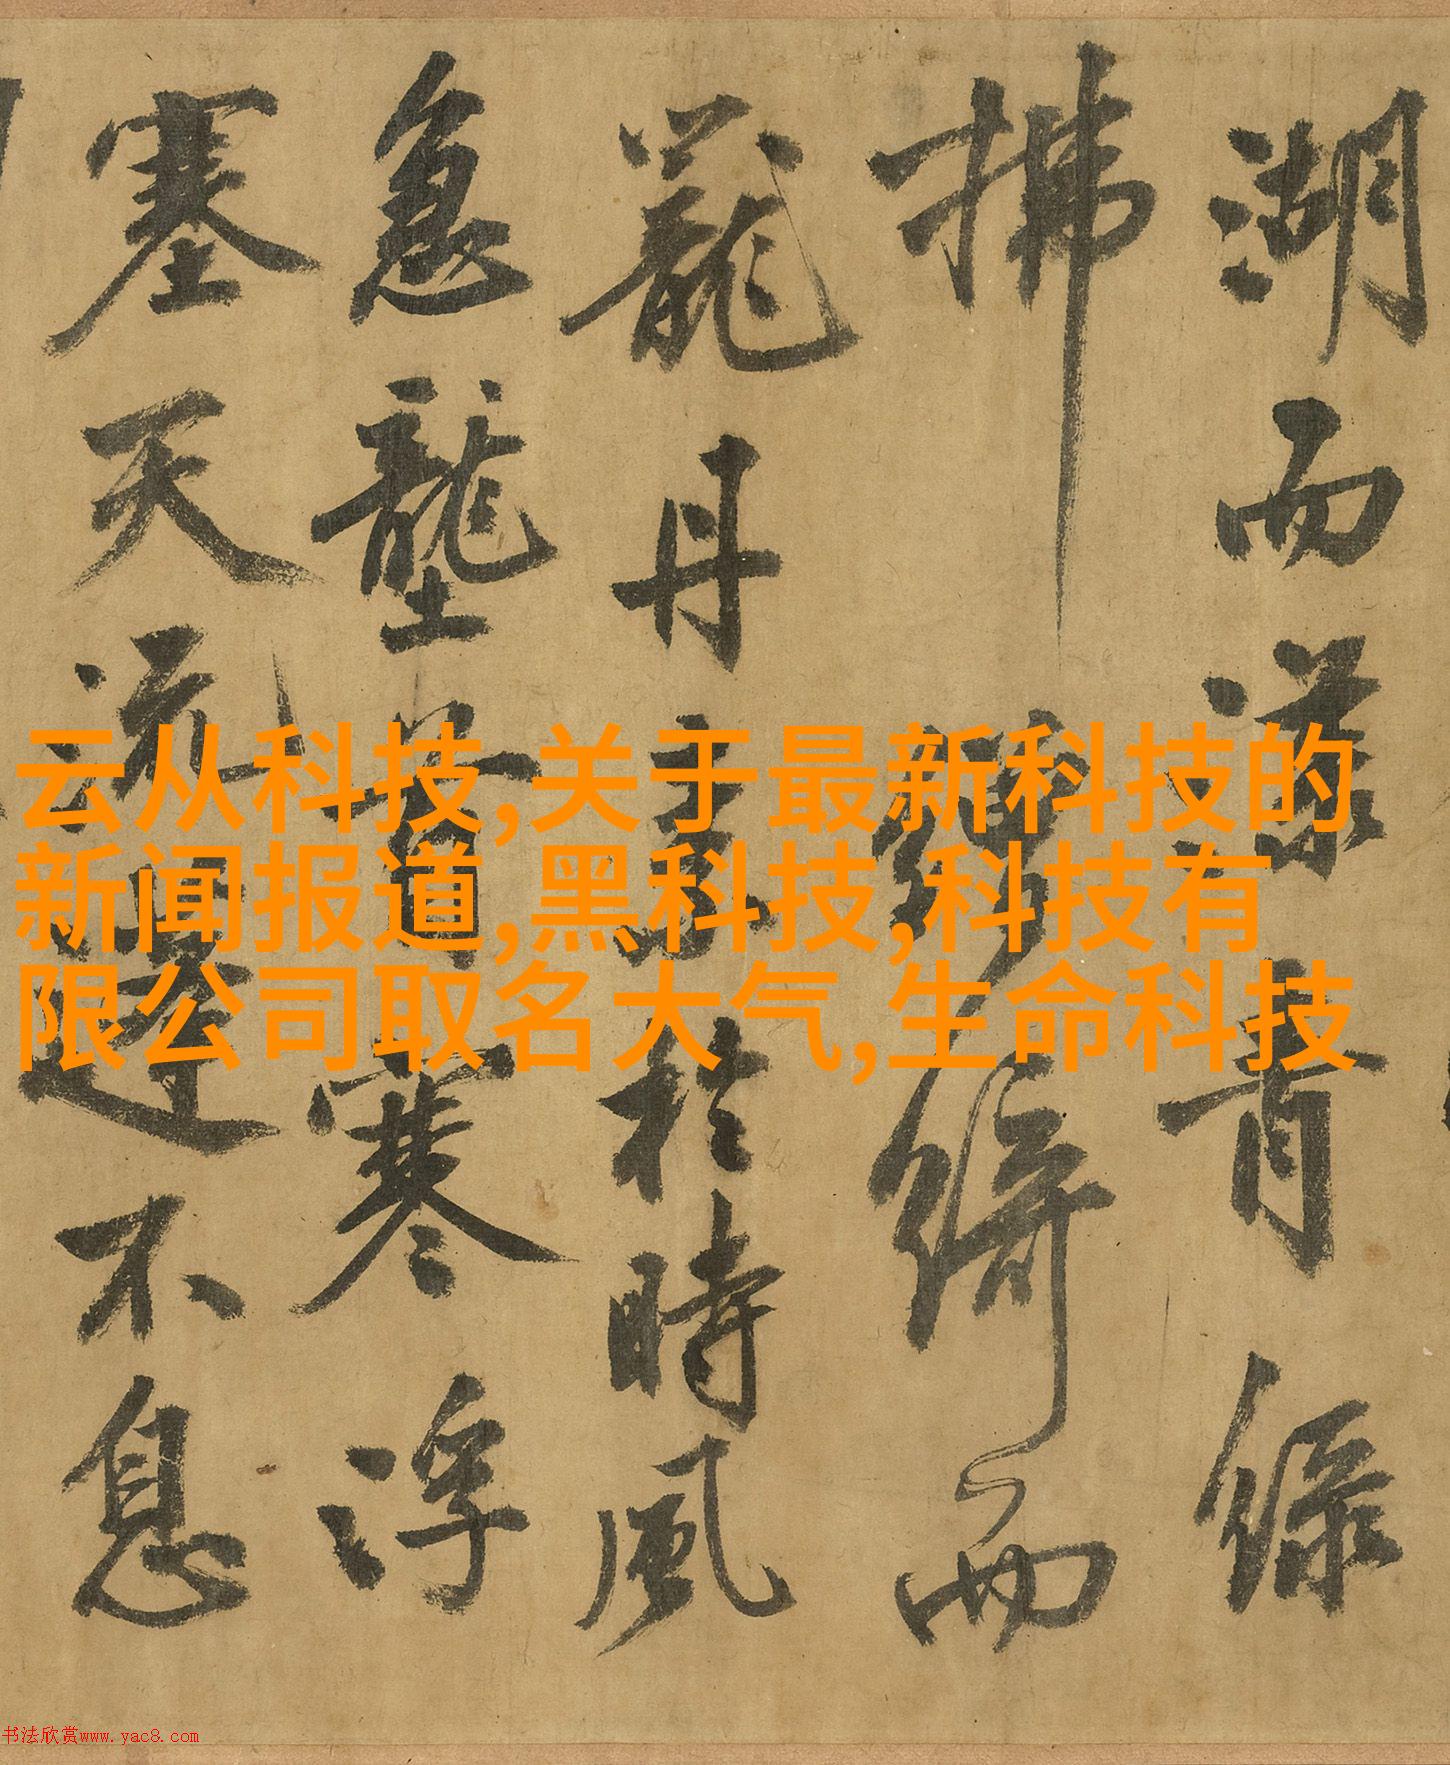 云从科技,关于最新科技的
新闻报道,黑科技,科技有
限公司取名大气,生命科技
湖而漾青綠
拂綺而
丹於時風
急壟寒浮
塞天流不息
书法欣赏www.yac8.com